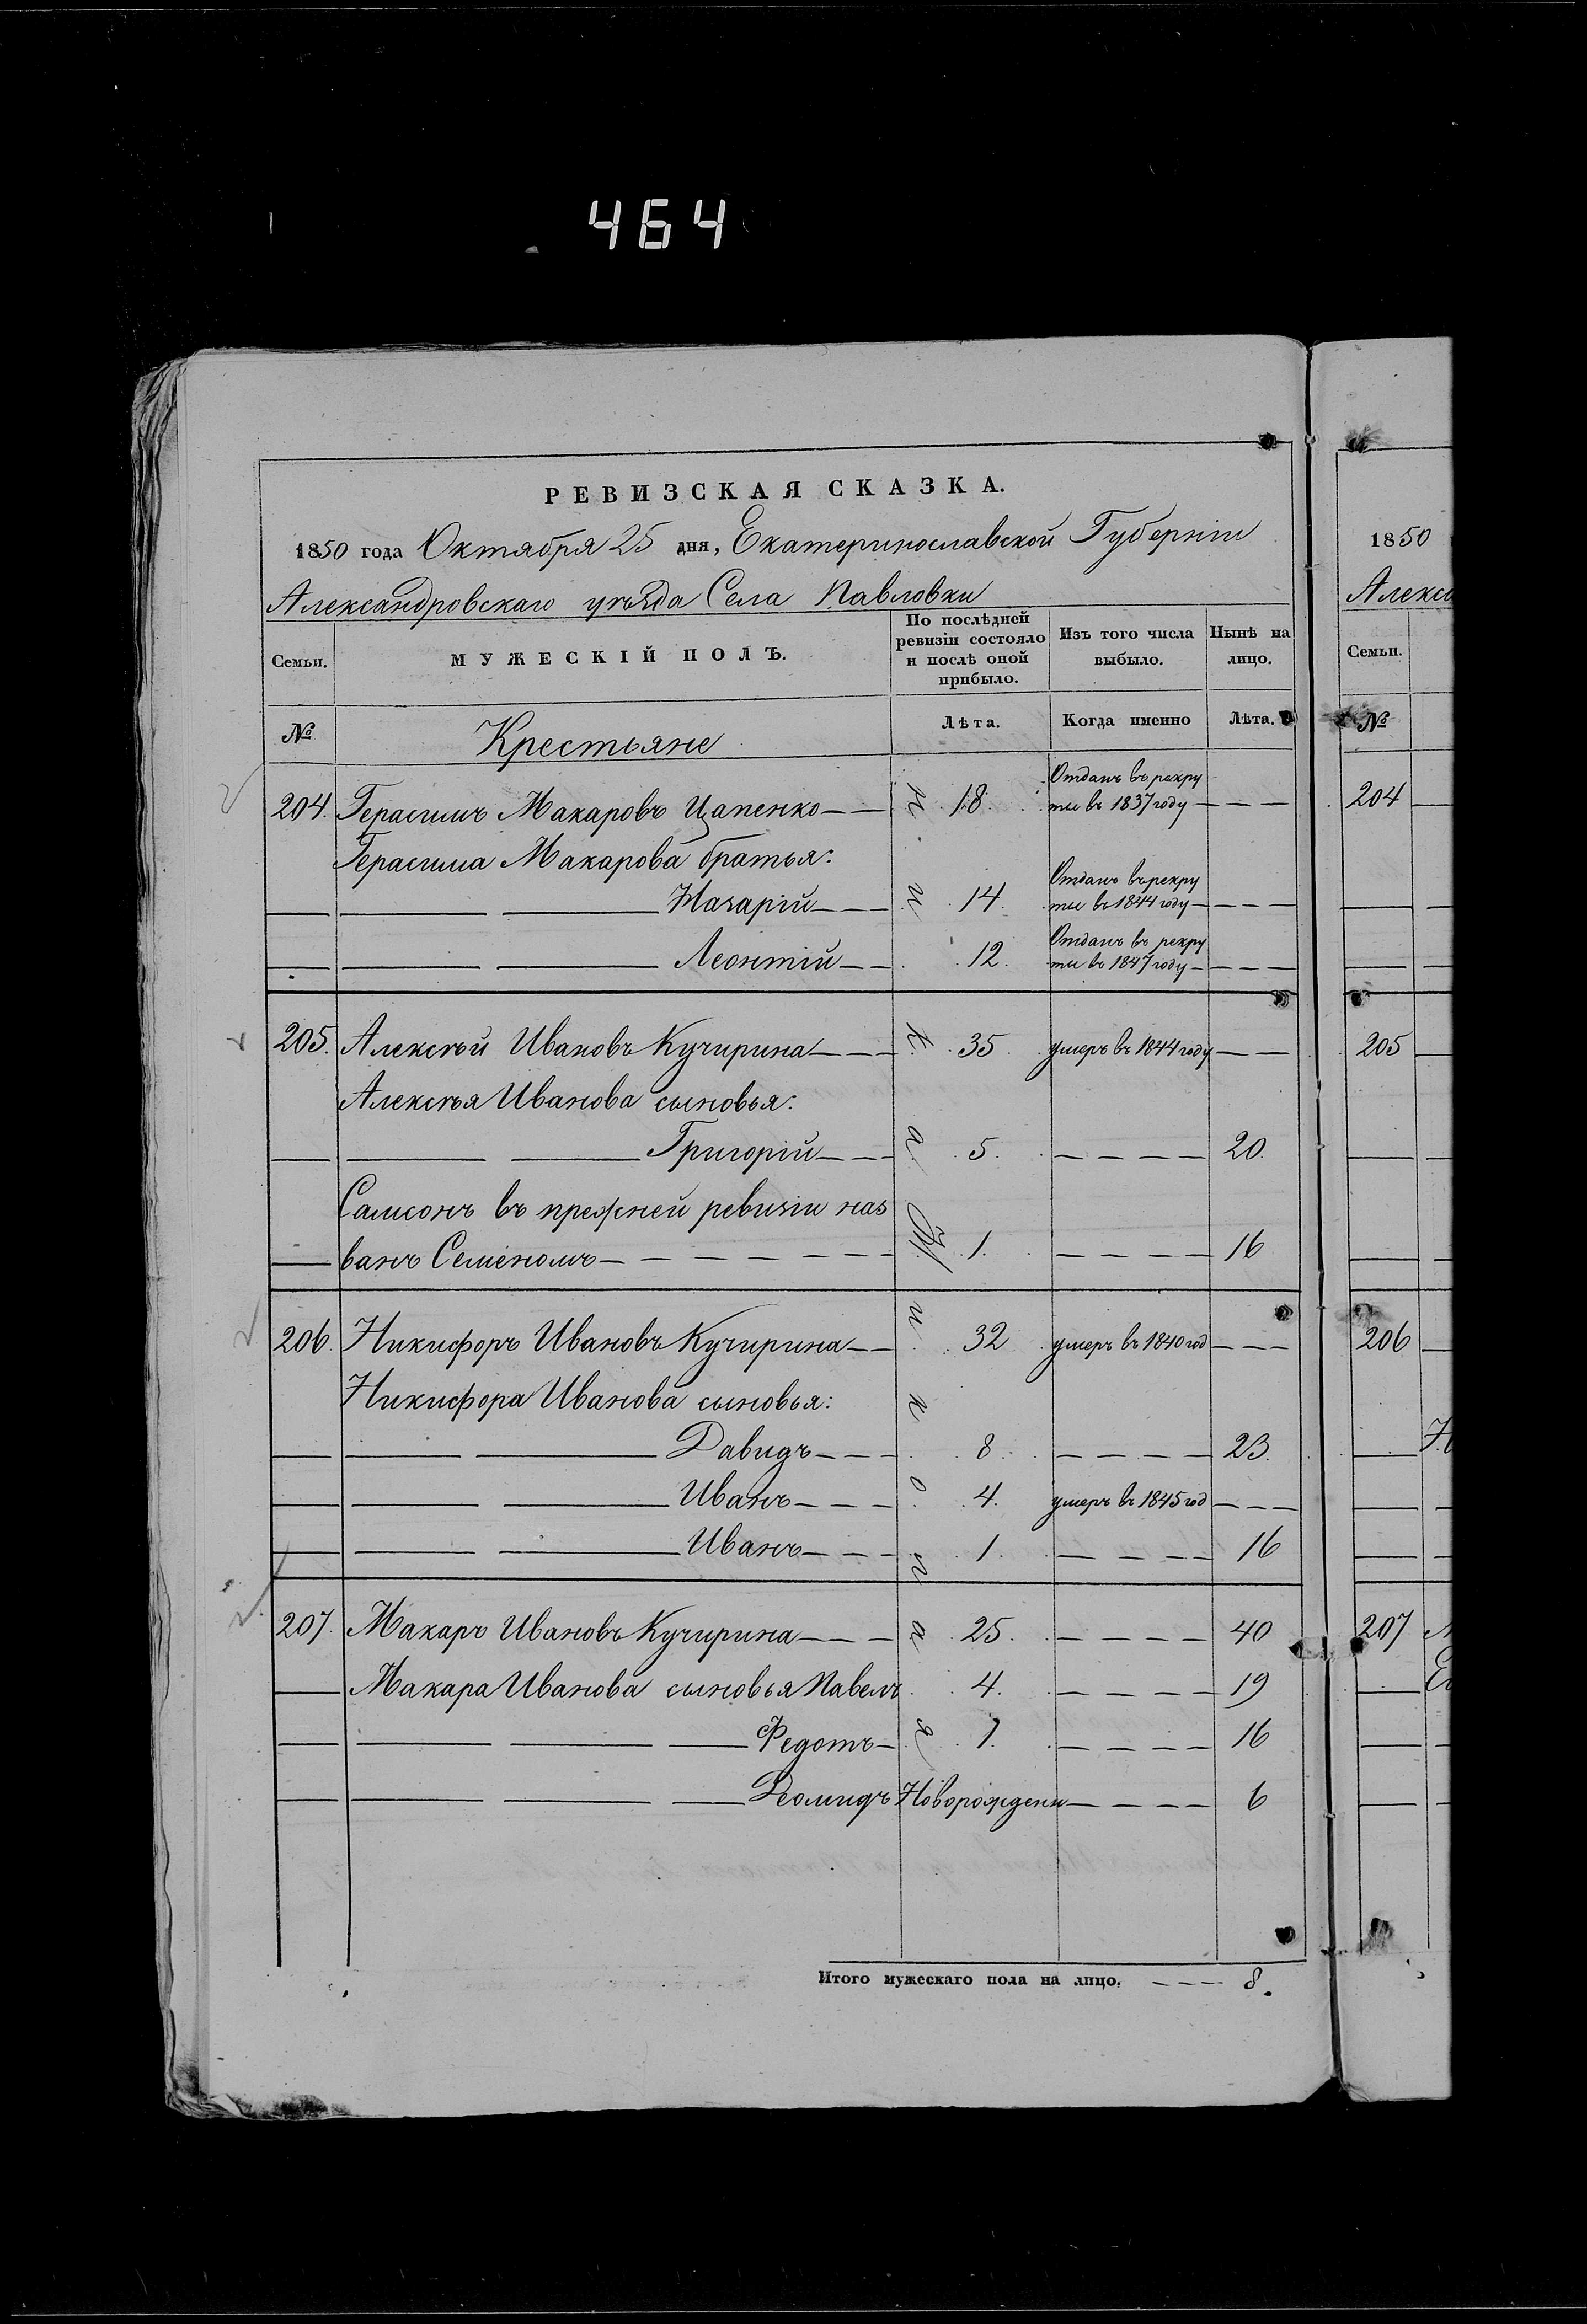 464
РЕВИЗСКАЯ СКАЗКА.
1850 года Октября 25 дня, Екатеринославской Губерніи
Александровскаго уѣзда Села Павловки
Семьи. МУЖЕСКІЙ ПОЛЪ. По послѣдней ревизіи состояло и послѣ оной прибыло. Изъ того числа выбыло. Нынѣ на лицо.
№ Крестьяне Лѣта. Когда именно Лѣта.
204. Герасимъ Макаровъ Цапенко 18. Отданъ въ рекруты въ 1837 году
Герасима Макарова братья:
Назарій 14. Отданъ въ рекруты въ 1844 году
Леонтій 12. Отданъ въ рекруты въ 1847 году
205. Алексѣй Ивановъ Кучирина 35. умеръ въ 1844 году
Алексѣя Иванова сыновья:
Григорій 5. 20.
Самсонъ въ прежней ревизіи наз
ванъ Семеномъ 1. 16
206. Никифоръ Ивановъ Кучирина 32 умеръ въ 1840 год
Никифора Иванова сыновья:
Давидъ 8. 23.
Иванъ 4. умеръ въ 1845 год
Иванъ 1. 16
207. Макаръ Ивановъ Кучирина 25. 40
Макара Иванова сыновья Павелъ 4. 19
Федотъ 1. 16
Деомидъ Новорожденн 6
Итого мужескаго пола на лицо. 8.
1850
Алекса
Семьи.
№
204
205
206
207